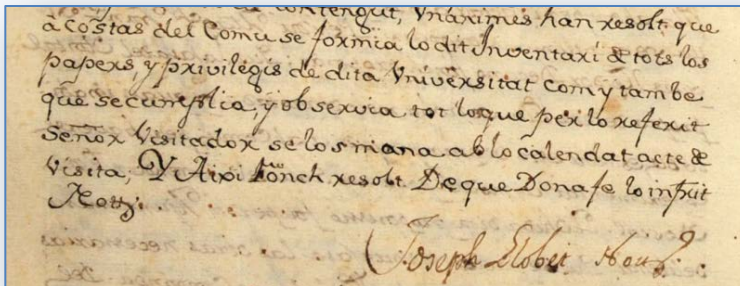 contengut, Vnàximes han resolt que
à costas del Comu se formia lo dit Inventari & tots los
papers, y privilegis de dita Vniversitat com y tambe
que se cumplia, y observia tot loque per lo referit
Señor Visitador se los mana ab lo calendat acte &
Visita, Y Aixi fonch resolt De que Dona fe lo infrit
Nott.
Joseph Llobet Nott.